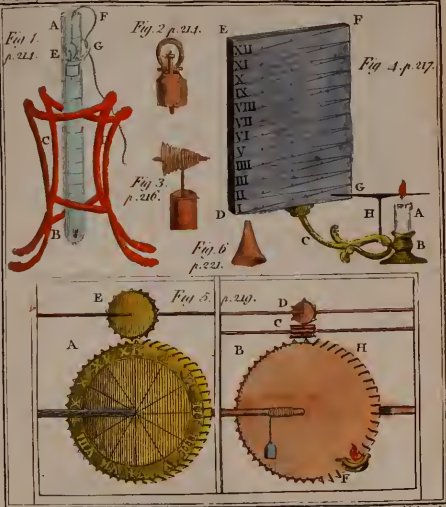 Fig 1.
p.214.
A
F
E
G
C
B
Fig. 2 p.214.
Fig 3.
p.216.
E
F
Fig. 4. p.217.
XII
XI
X
IX
VIII
VII
VI
V
IIII
III
II
I
D
G
H
A
C
B
Fig. 6
p.221.
Fig 5. p.219.
E
A
D
C
B
H
F